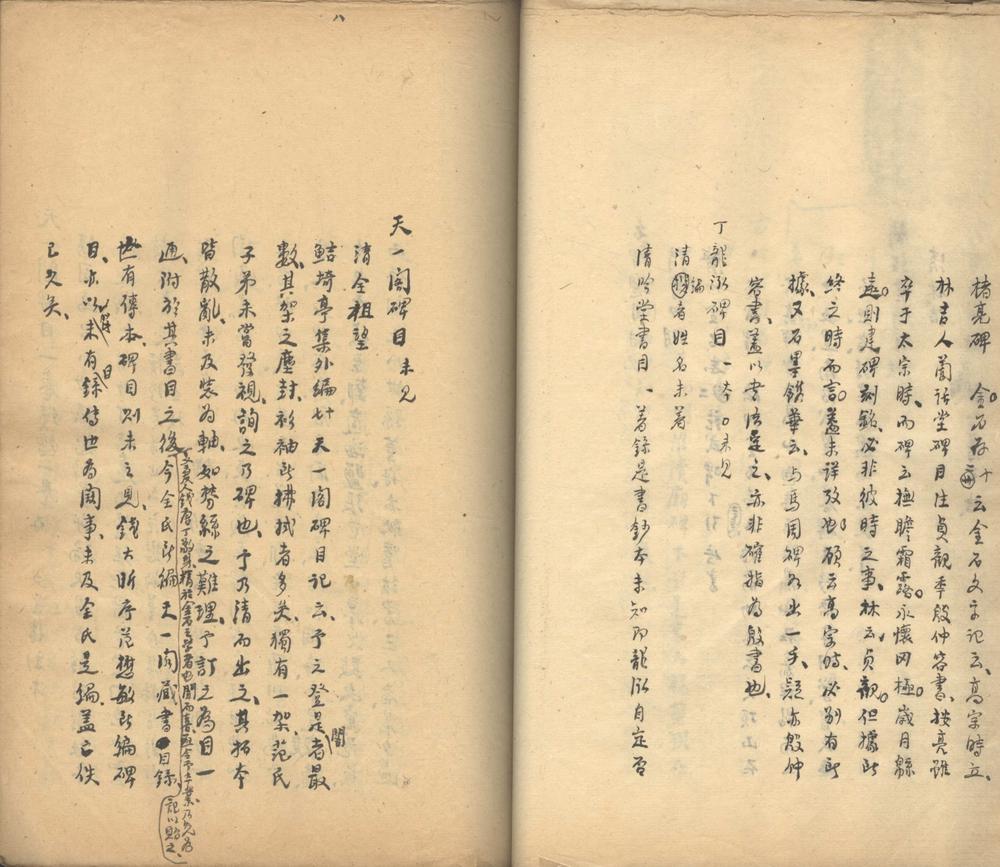 褚亮碑　金石存十云金石文字記云高宗時立
林吉人蘭話堂碑目注貞觀季殷仲容書按亮雖
卒于太宗時而碑云撫瞻霜露永懷罔極歲月緜
遠則建碑刻銘必非彼時之事林云貞觀但據所
終之時而言蓋未詳攷也顧云高宗時必別有所
據又石墨鐫華云与馬周碑如出一手疑亦殷仲
容書蓋以書法是之亦非確指為殷書也
丁龍泓碑目一本　未見
清　編者姓名未著
清吟堂書目一著錄是書鈔本未知即龍泓自定否
天一閣碑目　未見
清全祖望
鮚埼亭集外編　天一閣碑目記云予之登是閣者最
數其架之塵封衫袖所拂拭者多矣獨有一架范氏
子弟未嘗發視詢之乃碑也予乃清而出之其拓本
皆散亂未及裝為軸如棼絲之難理予訂之為目一
通附於其書目之後今全氏所編天一閣藏書目錄
丁敬身精於金石之學者也聞而喜亟令予卒業乃先為記以貽之
世有傳本碑目則未之見錢大昕序范懋敏所編碑
目亦以未有錄傳世為闕事未及全氏是編蓋已佚
已久矣